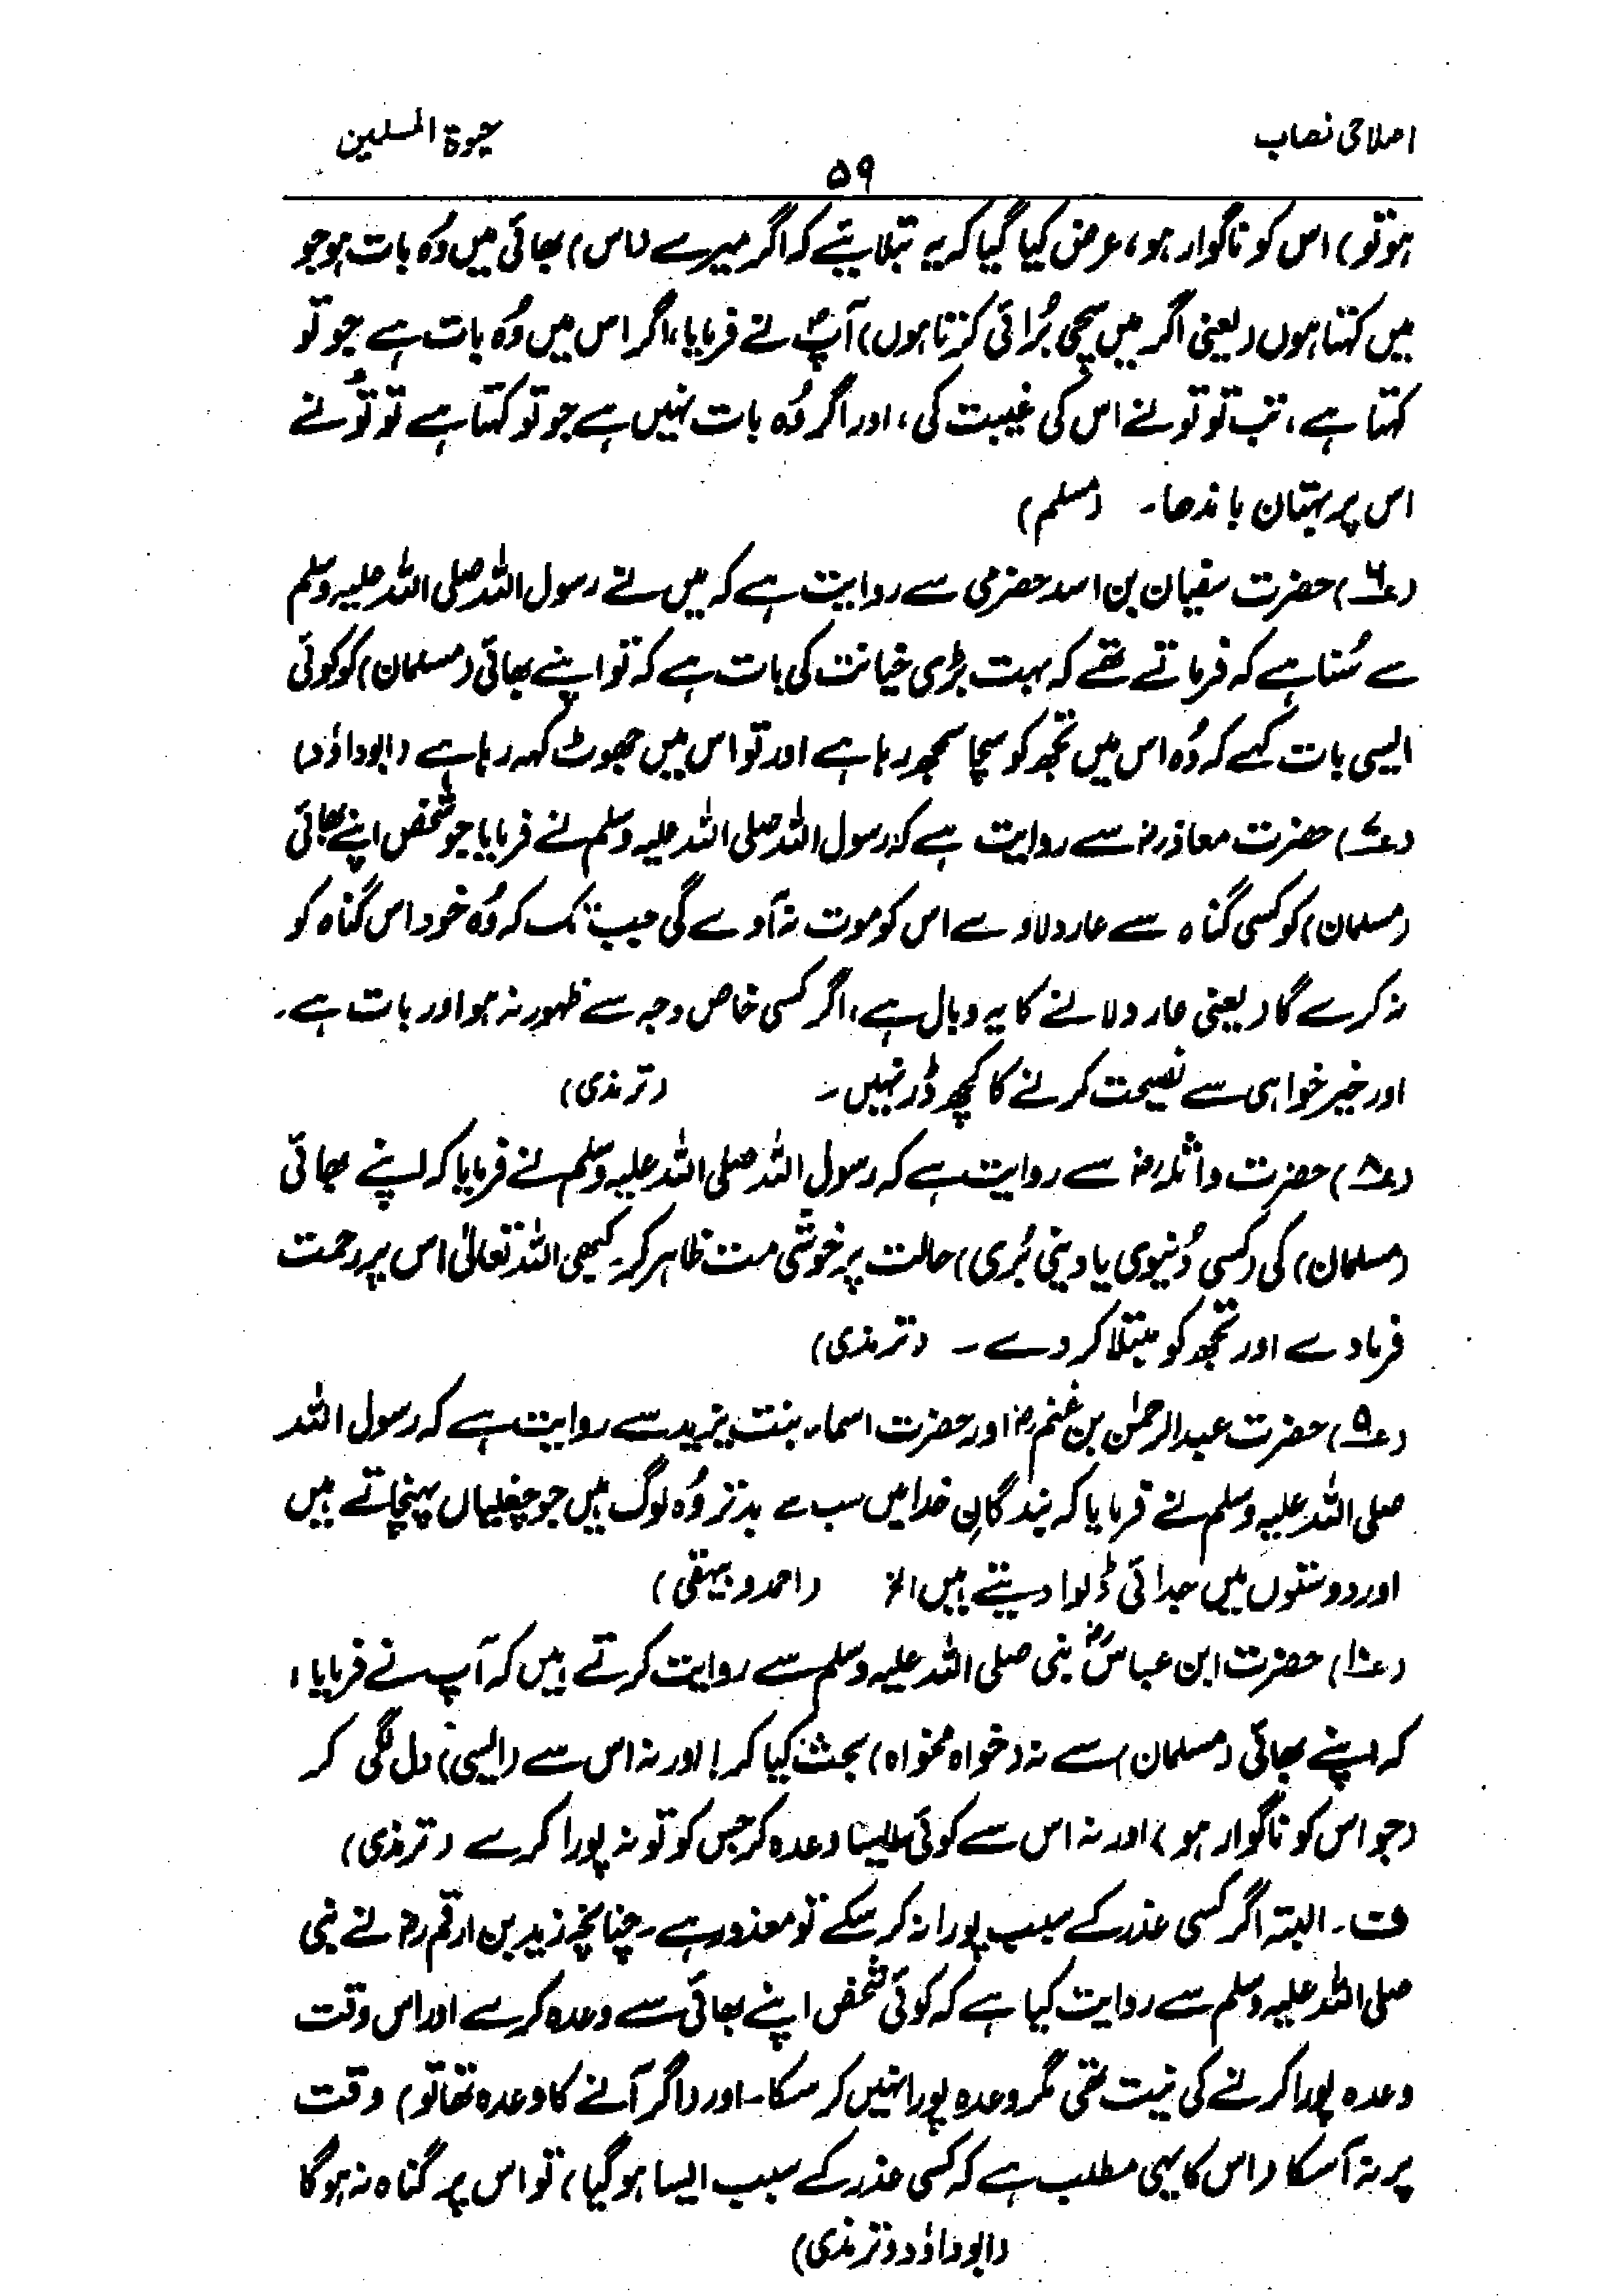 اصلاحی نصاب
حیوۃ المسلمین
۵۹
ہو تو) اس کو ناگوار ہو، عرض کیا گیا کہ یہ بتلائیے کہ اگر میرے (اس) بھائی میں وُہ بات ہو جو
میں کہتا ہوں (یعنی اگر میں سچی بُرائی کرتا ہوں) آپؐ نے فرمایا، اگر اس میں وُہ بات ہے جو تو
کہتا ہے، تب تو تو نے اس کی غیبت کی، اور اگر وُہ بات نہیں ہے جو تو کہتا ہے تو تُو نے
اس پر بہتان باندھا۔ (مسلم)
(۶؎) حضرت سفیان بن اسد حضرمی سے روایت ہے کہ میں نے رسول اللہ صلی اللہ علیہ وسلم
سے سُنا ہے کہ فرماتے تھے کہ بہت بڑی خیانت کی بات ہے کہ تو اپنے بھائی (مسلمان) کو کوئی
ایسی بات کہے کہ وُہ اس میں تجھ کو سچا سمجھ رہا ہے اور تو اس میں جھوٹ کہہ رہا ہے (ابوداؤد)
(۷؎) حضرت معاذ رضؓ سے روایت ہے کہ رسول اللہ صلی اللہ علیہ وسلم نے فرمایا جو شخص اپنے بھائی
(مسلمان) کو کسی گناہ سے عار دلاوے اس کو موت نہ آوے گی جب تک کہ وُہ خود اس گناہ کو
نہ کرے گا (یعنی عار دلانے کا یہ وبال ہے، اگر کسی خاص وجہ سے ظہور نہ ہو اور بات ہے۔
اور خیر خواہی سے نصیحت کرنے کا کچھ ڈر نہیں۔ (ترمذی)
(۸؎) حضرت واثلہ رضؓ سے روایت ہے کہ رسول اللہ صلی اللہ علیہ وسلم نے فرمایا کہ اپنے بھائی
(مسلمان) کی (کسی دُنیوی یا دینی بُری) حالت پر خوشی مت ظاہر کر۔ کبھی اللہ تعالیٰ اس پر رحمت
فرمادے اور تجھ کو مبتلا کر دے۔ (ترمذی)
(۹؎) حضرت عبدالرحمٰن بن غنم رضؓ اور حضرت اسماء بنت یزید سے روایت ہے کہ رسول اللہ
صلی اللہ علیہ وسلم نے فرمایا کہ بندگانِ خدا میں سب سے بدتر وُہ لوگ ہیں جو چغلیاں پہنچاتے ہیں
اور دوستوں میں جدائی ڈلوا دیتے ہیں الخ (احمد و بیہقی)
(۱۰؎) حضرت ابن عباسؓ نبی صلی اللہ علیہ وسلم سے روایت کرتے ہیں کہ آپ نے فرمایا،
کہ اپنے بھائی (مسلمان) سے نہ (خواہ مخواہ) بحث کیا کر! اور نہ اس سے (ایسی) دل لگی کر
(جو اس کو ناگوار ہو) اور نہ اس سے کوئی ایسا وعدہ کر جس کو تو نہ پورا کرے (ترمذی)
ف۔ البتہ اگر کسی عذر کے سبب پورا نہ کر سکے تو معذور ہے۔ چنانچہ زید بن ارقم رضؓ نے نبی
صلی اللہ علیہ وسلم سے روایت کیا ہے کہ کوئی شخص اپنے بھائی سے وعدہ کرے اور اس وقت
وعدہ پورا کرنے کی نیت تھی مگر وعدہ پورا نہیں کر سکا۔ اور (اگر آنے کا وعدہ تھا تو) وقت
پر نہ آسکا (اس کا یہی مطلب ہے کہ کسی عذر کے سبب ایسا ہو گیا) تو اس پر گناہ نہ ہوگا
(ابوداؤد و ترمذی)